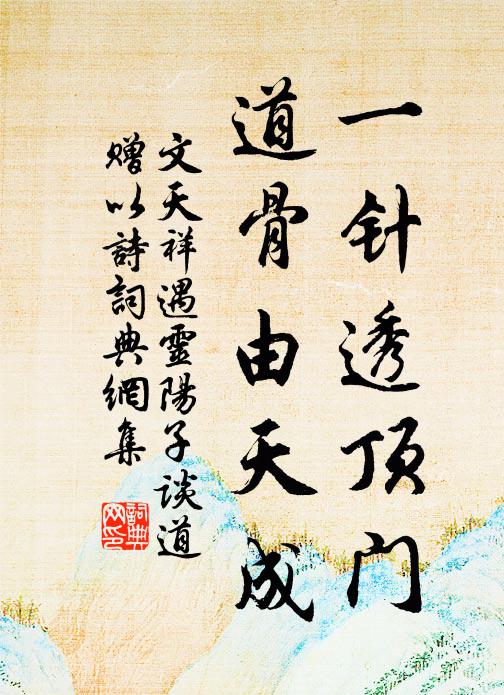 一针透顶门
道骨由天成
文天祥遇靈陽子談道
贈以詩詞典網集
詞典網印